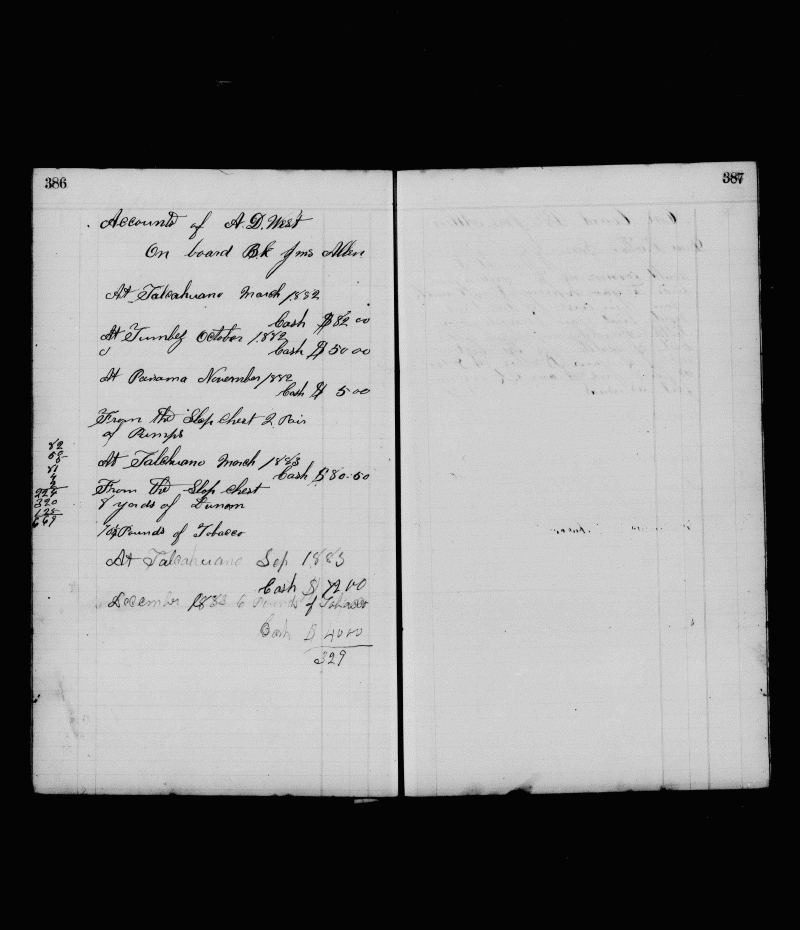 386
Accounts of A. D. West
On board Bk Jms Allen
At Talcahuano March 1882
Cash $ 82 00
At Tumbez October 1882
Cash $ 50 00
At Panama November 1882
Cash $ 5 00
From the Slop Chest 2 Pair
of Pumps
At Talchuano March 1883
Cash $ 80.50
From the Slop Chest
8 yards of
Pounds of Tobacco
At Talcahuano Sep 1883
Cash $
December 1883 6 Pounds of Tobacco
Cash $ 40 00
329
82
81
224
320
125
669
387